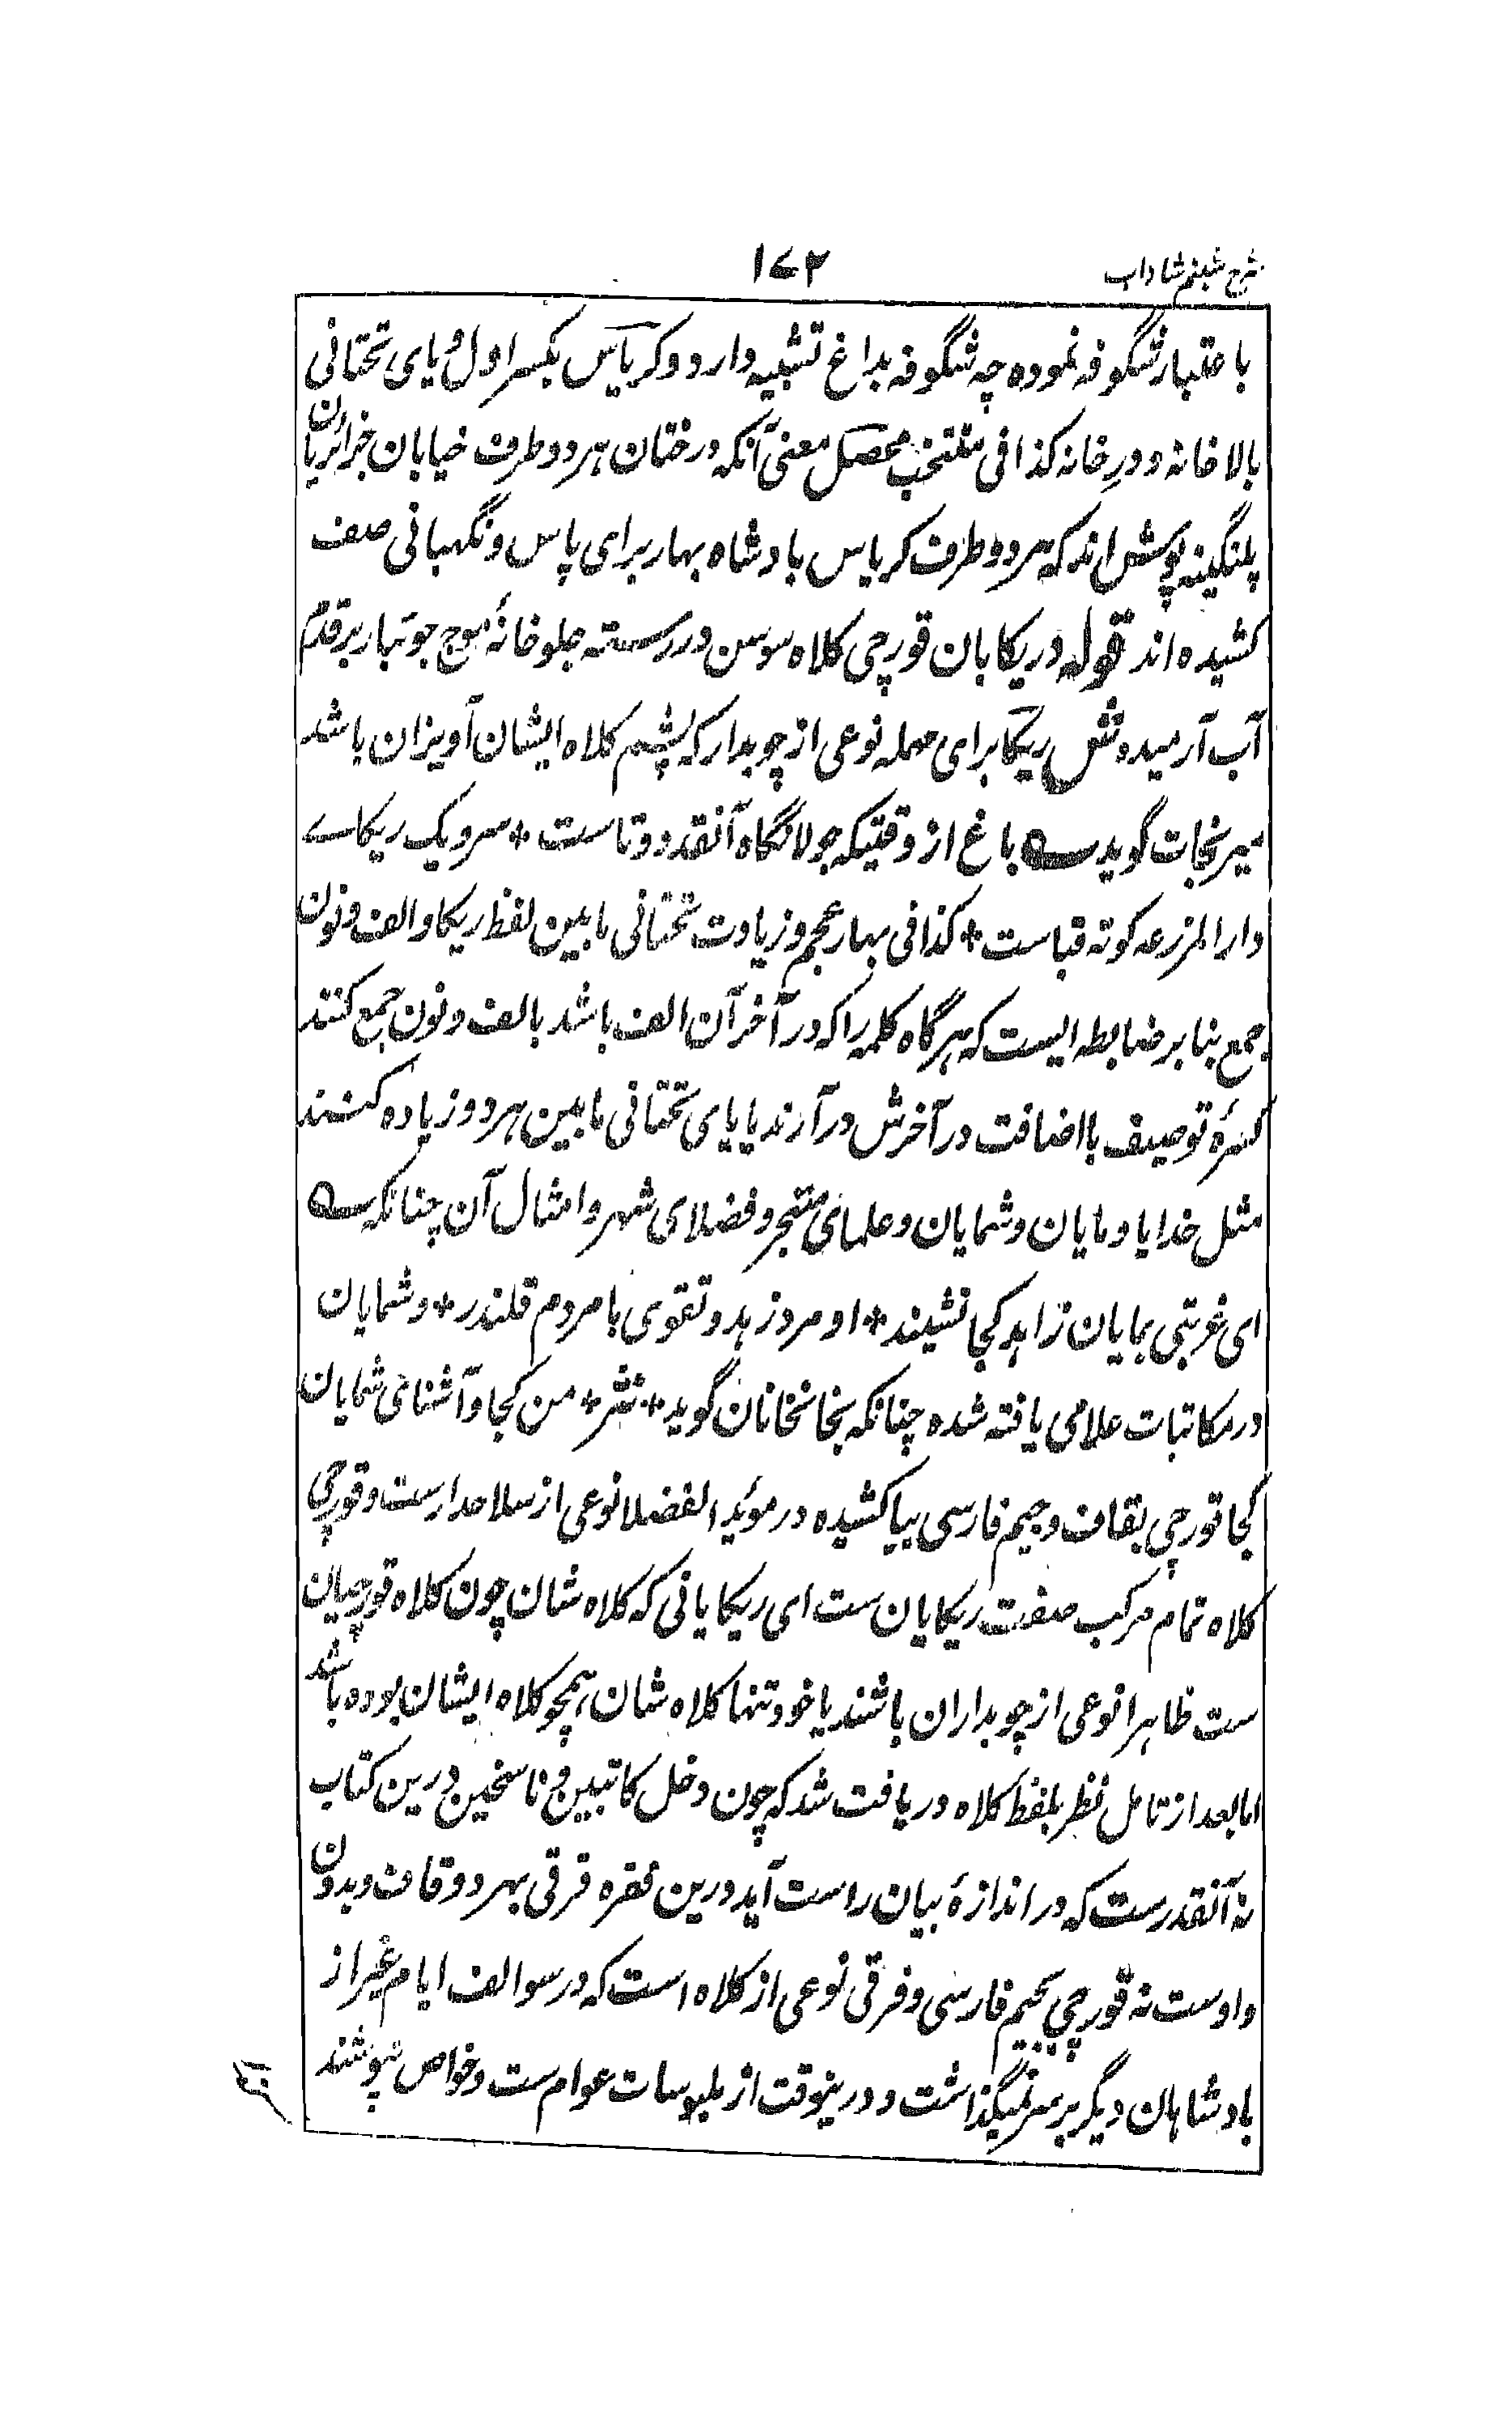 شرح شبنم شاداب
۱۷۲
باعتبار شگوفه نموده چه شگوفه بداغ تشبیه دارد و کریاس بکسر اول و یای تحتانی
بالا خانه و درِ خانه کذا فی منتخب محصل معنی آنکه درختان هر دو طرف خیابان جزائریان
پلنگینه پوشش اند که هر دو طرف کریاس بادشاه بهار برای پاس و نگهبانی صف
کشیده اند قوله و ریکایان قورچی کلاه سوسن در رسته جلو خانهٔ موج جوئبار بر قدم
آب آرمیده ش ریکا برای مهمله نوعی از چوبدار که پشم کلاه ایشان آویزان باشد
میر نجات گوید ؎ باغ از وقتیکه جولانگاه آنقد دوتاست * سرو یک ریکاے
دار المزرعه کوته قباست * کذا فی بهار عجم و زیادت تحتانی مابین لفظ ریکا و الف و نون
جمع بنا بر ضابطه ایست که هر گاه کلمه را که در آخر آن الف باشد بالف و نون جمع کنند
کسرهٔ توصیف یا اضافت در آخرش در آرند یا یای تحتانی مابین هر دو زیاده کنند
مثل خدایا و مایان و شمایان و علمای متبحر و فضلای شهر و امثال آن چنانکه ؎
ای غربتی بمایان زاهد کجا نشیند * او مرد زهد و تقوی با مردم قلندر * و شمایان
در مکاتبات علامی یافته شده چنانکه بخانخانان گوید * نثر * من کجا و آشنای شمایان
کجا قورچی بقاف و جیم فارسی بیا کشیده در موئد الفضلا نوعی از سلاحدارست و قورچی
کلاه تمام مرکب صفت ریکایان ست ای ریکایانی که کلاه شان چون کلاه قورچیان
ست ظاهرا نوعی از چوبداران باشند یا خود تنها کلاه شان همچو کلاه ایشان بوده باشد
اما بعد از تامل نظر بلفظ کلاه دریافت شد که چون دخل کاتبین و ناسخین درین کتاب
نه آنقدرست که در اندازهٔ بیان راست آید درین فقره قرقی بهر دو قاف و بدون
واوست نه قورچی بجیم فارسی و قرقی نوعی از کلاه است که در سوالف ایام غیر از
بادشاهان دیگر بر سر نمیگذاشت و درینوقت از ملبوسات عوام ست و خواص نپوشند